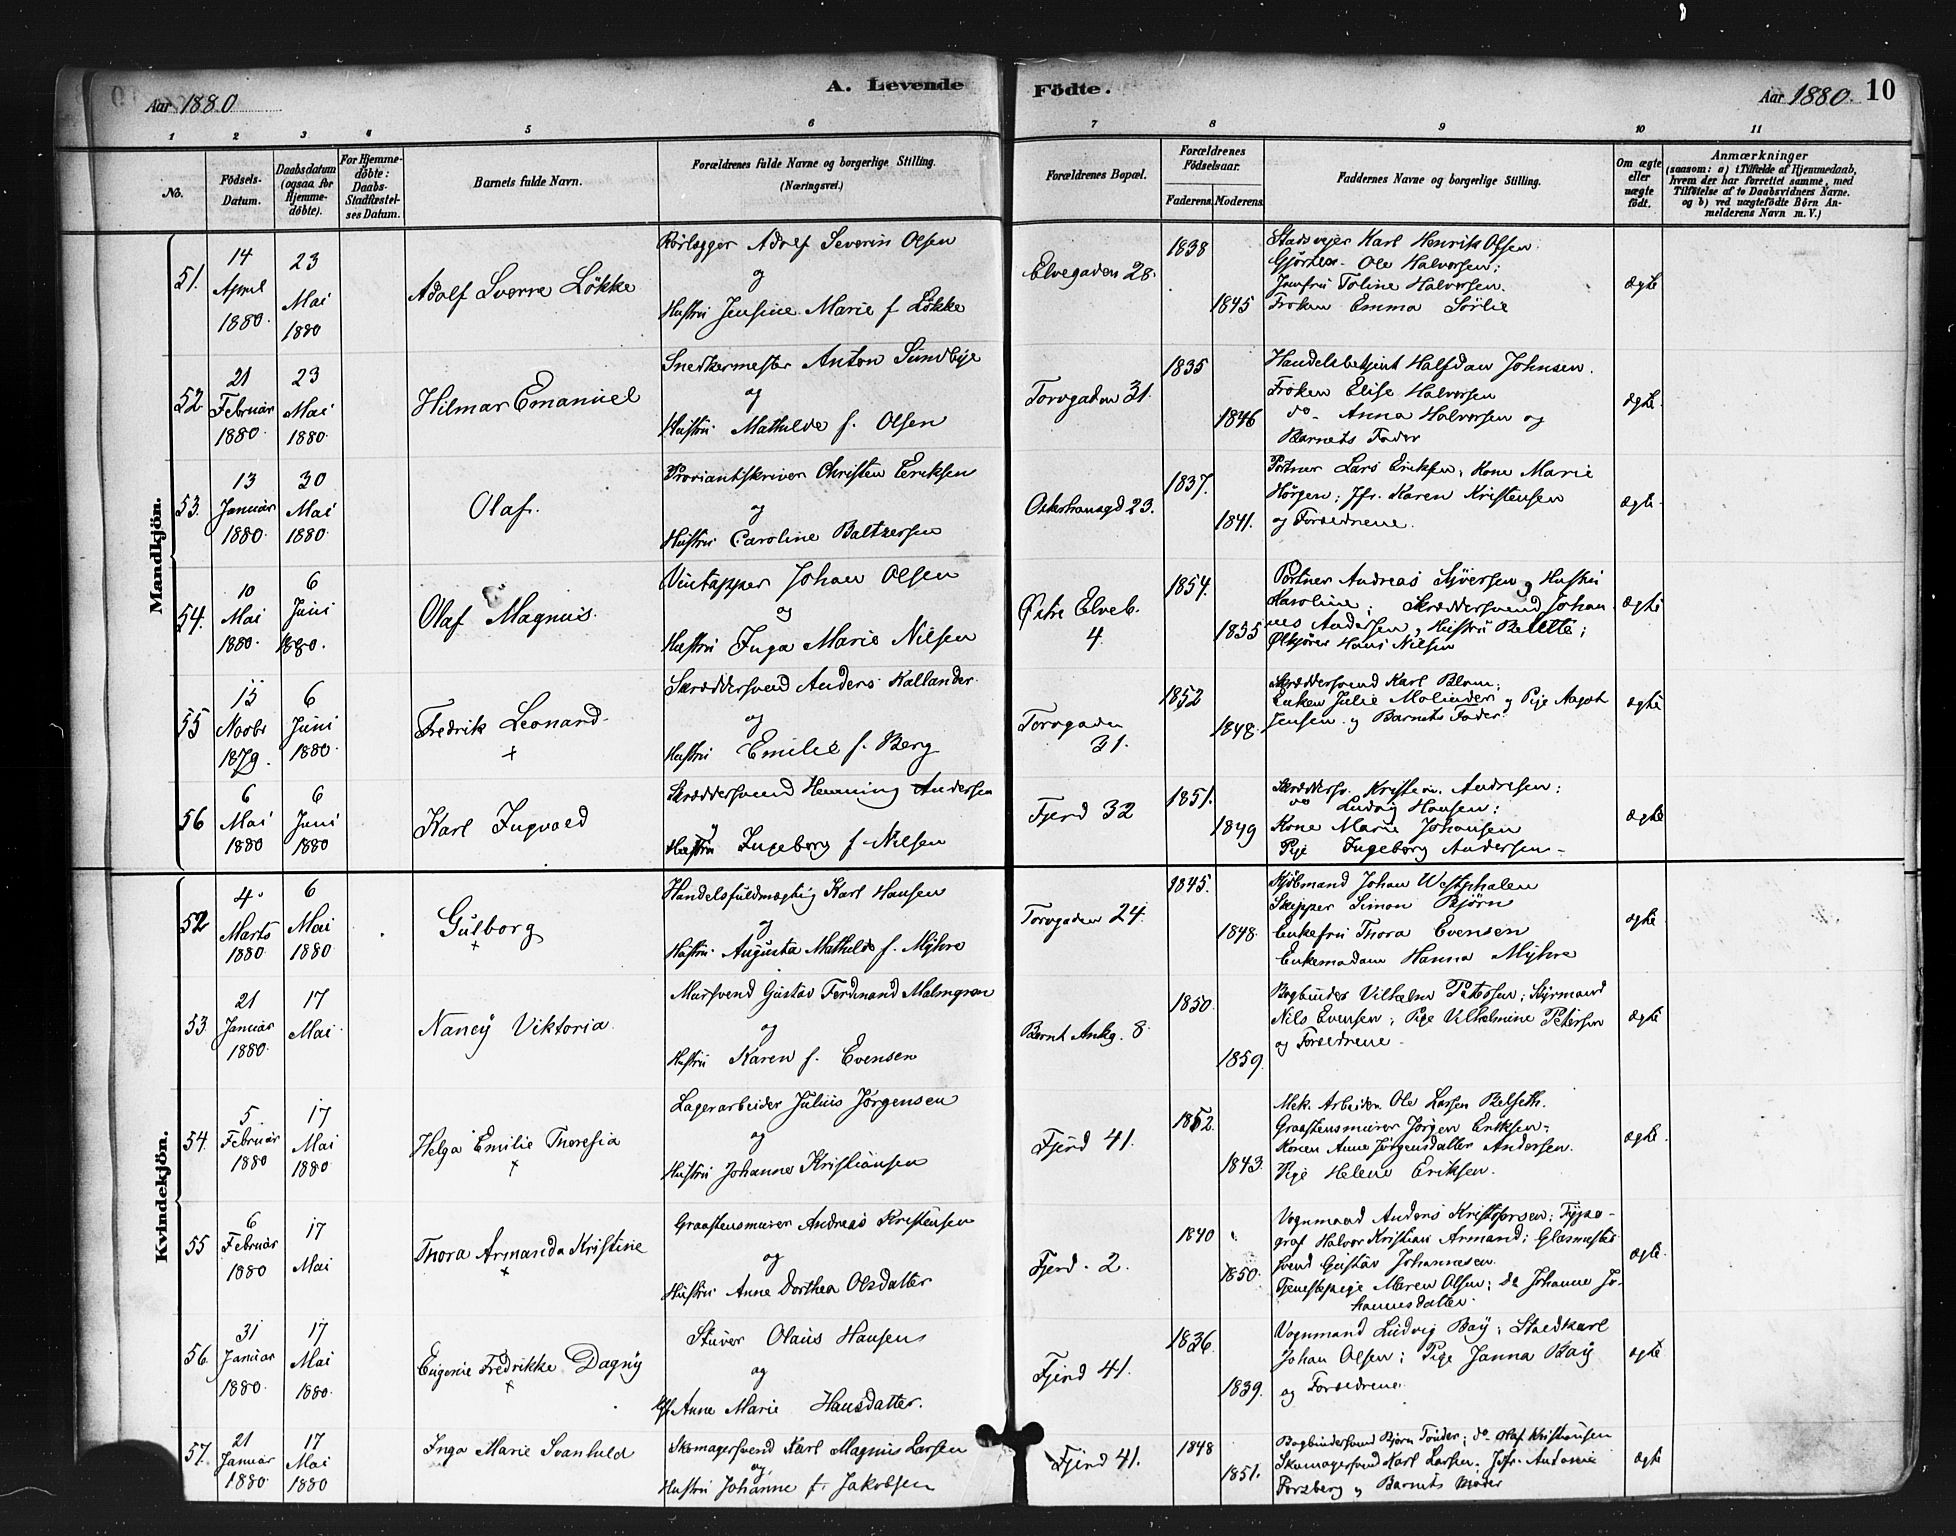 Aar 1880
A. Levende
Födte.
Aar 1880.
10
1 2 3 4 5 6 7 8 9 10 11
No.
Födsels-
Datum.
Daabsdatum
(ogsaa for
Hjemme-
döbte).
For Hjemme-
döbte:
Daabs-
Stadfæstel-
ses Datum.
Barnets fulde Navn.
Forældrenes fulde Navne og borgerlige Stilling.
(Næringsvei.)
Forældrenes Bopæl.
Forældrenes
Födselsaar.
Faderens. Moderens.
Faddernes Navne og borgerlige Stilling.
Om ægte
eller
uægte
födt.
Anmærkninger
(saasom: a) i Tilfælde af Hjemmedaab,
hvem der har forrettet samme, med
Tilföielse af to Daabsvidners Navne.
og b) ved uægtefödte Börn An-
melderens Navn m. V.)
Mandkjön.
51.
14
April
1880.
23
Mai
1880
Adolf Sverre Løkke
Rørlegger Adolf Severin Olsen
og
Hustru Jensine Marie f Løkke
Elvegaden 28.
1838
1845
Karl Henrik Olsen
Gjørtler Ole Halvorsen;
Jomfru Toline Halvorsen.
Frøken Emma Sørlie
ægte
52
21
Februar
1880.
23
Mai
1880.
Hilmar Emanuel
Snedkermester Anton Sundbye
og
Hustru Mathilde f. Olsen
Torvgaden 31.
1835
1846
Handelsbetjent Halfdan Johnsen.
Frøken Elise Halvorsen
do Anna Halvorsen og
Barnets Fader
ægte.
53.
13
Januar
1880.
30
Mai
1880.
Olaf.
Proviantskriver Christen Eriksen
og
Hustru Caroline Baltzersen
23.
1837.
1841.
Portner Lars Eriksen, Kone Marie
Hörgen; Jfr. Karen Kristensen
og Forældrene.
ægte.
54.
10
Mai
1880.
6
Juni
1880.
Olaf Magnus.
Vintapper Johan Olsen
og
Hustru Inga Marie Nilsen
Østre Elveb.
4.
1854.
1855
Portner Andreas Syversen og Hustru
Karoline; Skræddersvend Johan-
nes Andersen og Hustru
Ølkjører Hans Nilsen
ægte
55
15
Novbr
1879.
6
Juni
1880.
Fredrik Leonard
+
Skræddersvend Anders Kallander.
og
Hustru Emilie f. Berg
Torvgaden
31.
1852
1848.
Skræddersvend Karl Blom;
Enken Julie Molinder og Pige Aagot
Jensen og Barnets Fader.
ægte
56
6
Mai
1880
6
Juni
1880
Karl Ingvald
Skræddersvend Henning Andersen
og
Hustru Ingeborg f Nilsen
Fjerd 32
1851.
1849
Skræddersv. Andresen;
do Ludvig Hansen;
Kone Marie Johansen
Pige Ingeborg Andersen.
ægte
Kvindekjön.
52
4.
Marts
1880.
6
Mai
1880
Gulborg
+
Handelsfuldmægtig Karl Hansen
og
Hustru Augusta Mathilde f. Myhre
Torvgaden 24.
1845.
1848.
Kjøbmand Johan Westphalen
Skipper Simon Bjørn
Enkefru Thora Evensen
Enkemadam Hanna Myhre
ægte
53.
21
Januar
1880.
17
Mai
Nancy Viktoria.
Mursvend Gustav Ferdinand Malmgren
og
Hustru Karen f. Evensen
Bernt Ankg. 8.
1850.
1859.
Bogbinder Vilhelm Petersen; Styrmand
Nils Evensen; Pige Vilhelmine Petersen
og Forældrene.
ægte
54.
5.
Februar
1880
17
Mai
1880.
Helga Emilie Theresia
+
Lagerarbeider Julius Jørgensen
og
Hustru Johanne Kristiansen
Fjerd 41.
1852.
1843.
Mek. Arbeider Ole Larsen Belseth.
Graastensmurer Jørgen Eriksen.
Konen Anne Jørgensdatter Andersen.
Pige Helene Eriksen.
ægte.
55
6
Februar
1880
17
Mai
Thora Armanda Kristine
+
Graastensmurer Andreas Kristensen
og
Hustru Anne Dorthea Olsdatter
Fjerd. 2.
1840
1850.
Vognmand Anders Kristofersen; Typo-
graf Halvor Kristian Armand; Glasmester-
svend Gustav Johannesen.
Tjenestepige Maren Olsen; do Johanne Jo-
hannesdatter.
ægte.
56.
31
Januar
1880.
17
Mai
1880.
Eugenie Fredrikke Dagny
+
Stuver Olaus Hansen
og
Anne Marie Hansdatter.
Fjerd 41.
1836.
1839.
Vognmand Ludvig Bay; Staldkarl
Johan Olsen; Pige Janna Bay
og Forældrene.
ægte.
57.
21
Januar
1880.
17
Mai
1880
Inga Marie Svanhild
Skomagersvend Karl Magnus Larsen
og
Hustru Johanne f. Jakobsen
Fjerd 41.
1848
1851.
Bogbindersvend Bjørn Tønder; do Olaf Kristiansen
Skomagersvend Karl Larsen. Jfr. Antonie
Forsberg og Barnets Moder
ægte